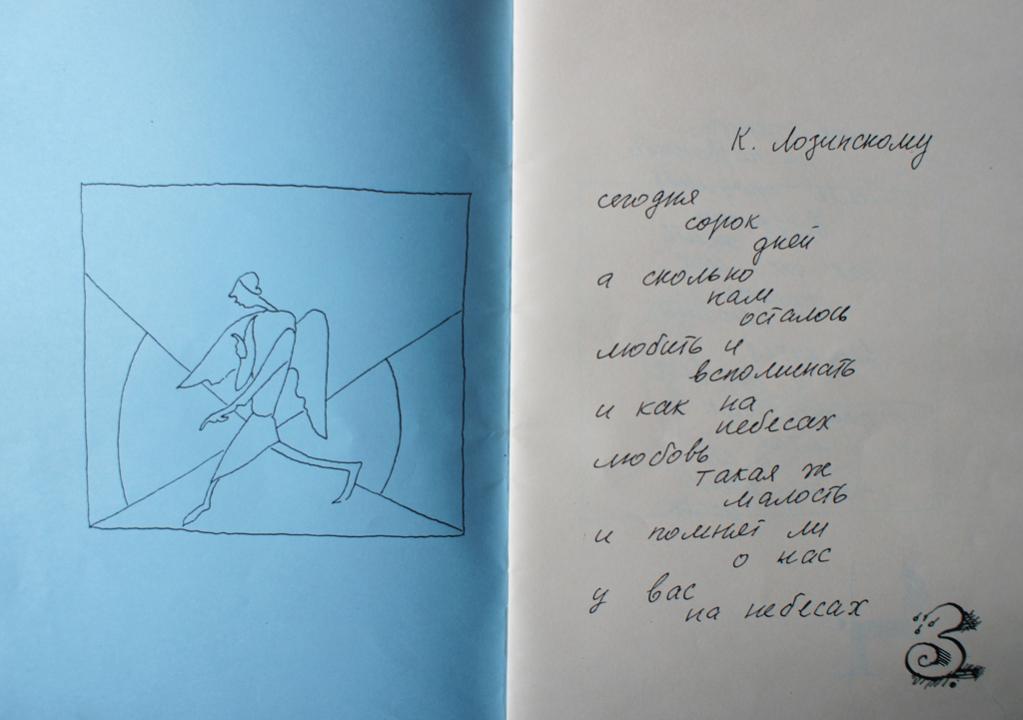 К. Лозинскому
сегодня
сорок
дней
а сколько
нам
осталось
любить и
вспоминать
и как на
небесах
любовь
такая ж
малость
и помнят ли
о нас
у вас
на небесах
3.